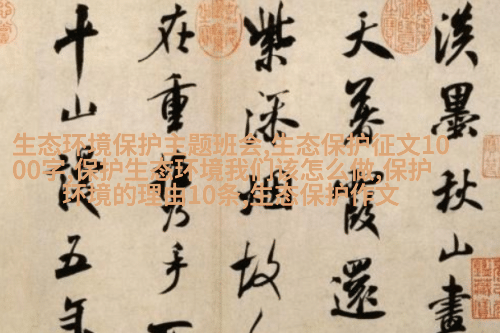 生态环境保护主题班会,生态保护征文10
00字,保护生态环境我们该怎么做,保护
环境的理由10条,生态保护作文
淡墨秋山畫
天暮霞還
紫添烟故
在重攜手
平山謾五年